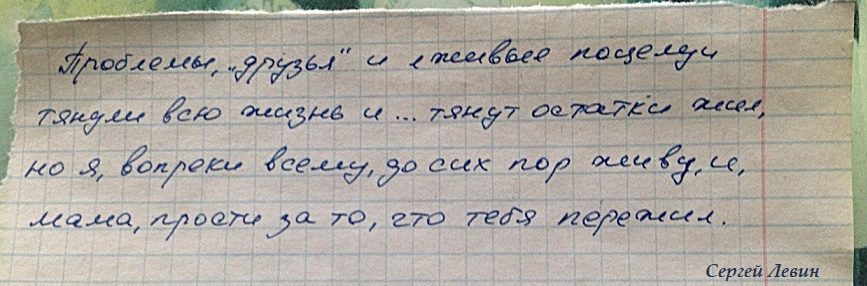 Проблемы, „друзья“ и лживые поцелуи
тянули всю жизнь и ... тянут остатки жил,
но я, вопреки всему, до сих пор живу, и,
мама, прости за то, что тебя пережил.
Сергей Левин